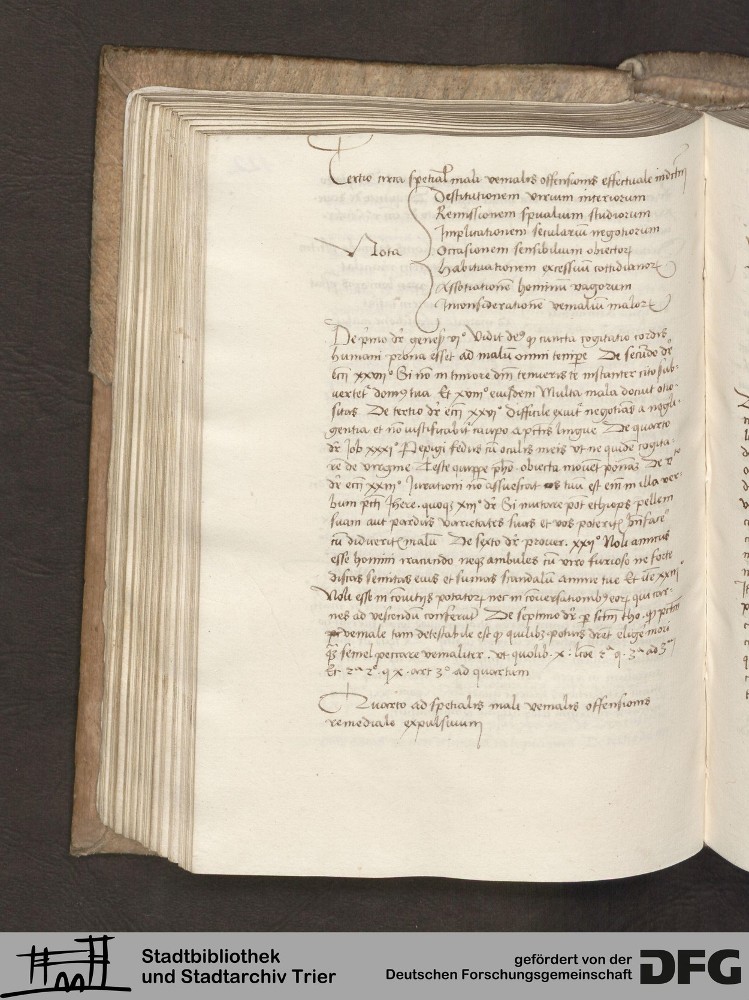 Tertio circa spetial mali venialis offensionis effectuale inditm
Destitutionem virium interiorum
Remissionem spualium studiorum
Implicationem secularium negotiorum
Nota
Occasionem sensibilium obiector
Habituationem excessuu cottidianor
Assotiatione hominu vagorum
Inconsideratione venialiu malor
De pmo dr genesi vi° Vidit deus q cuncta cogitatio cordis
humani prona esset ad malu omni tempe De secudo dr
Ecci xxvii° Si no in timore dni tenueris te instanter cito sub-
vertet domus tua Et xviii° eiusdem Multa mala docuit otio-
sitas De tertio dr ecci xxvi° difficile exuit negotias a negli-
gentia et no iustificabit caupo a pctis lingue De quarto
dr Job xxxi° Pepigi fedus cu oculis meis ut ne quide cogita-
re de virgine Teste quippe pho obiecta movet potentias De
dr ecci xxiii° Iurationi no assuescat os tuu est eni in illa ver
bum pcti Jhere. quoq xiii° dr Si mutare pot ethiops pellem
suam aut pardus varietates suas et vos poterit bnfacere
cu didicerit malu De sexto dr prover. xxii° Noli amicus
esse homini iracundo neq ambules cu viro furioso ne forte
discas semitas eius et sumas scandalu anime tue Et
Noli esse in coviviis potator nec in coversationib eor qui car
nes ad vescendu conferut De septimo dr p sctm tho. q pctm
veniale tam detestabile est q quilibz potius dret elige mori
qz semel peccare venialiter. ut quolib. x.
ad quartum
Quarto ad spetialis mali venialis offensionis
remediale expulsivum
Stadtbibliothek
und Stadtarchiv Trier
gefördert von der
Deutschen Forschungsgemeinschaft
DFG